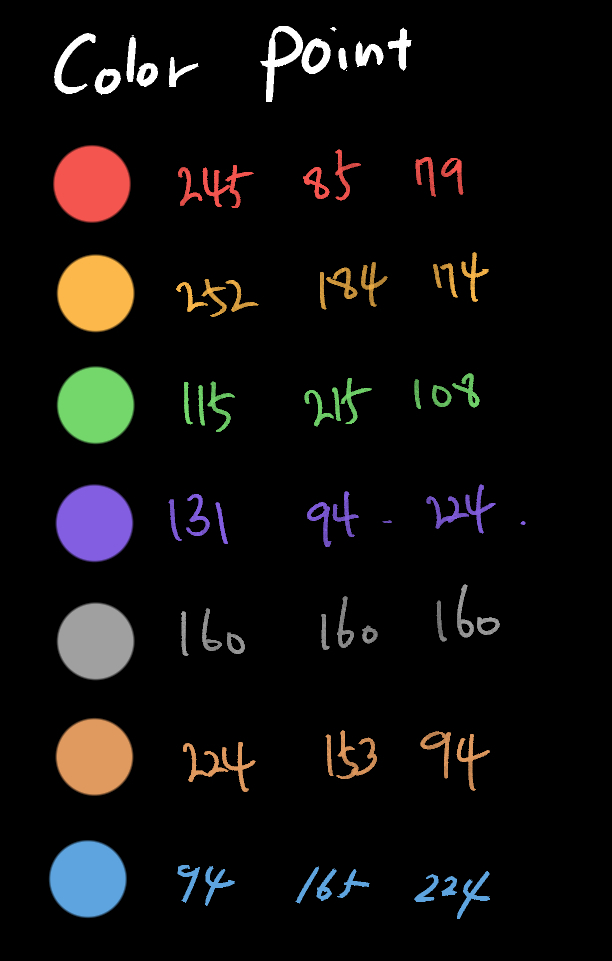 Color Point
245 85 79
252 184 74
115 215 108
131 94 - 224 .
160 160 160
224 153 94
94 165 224